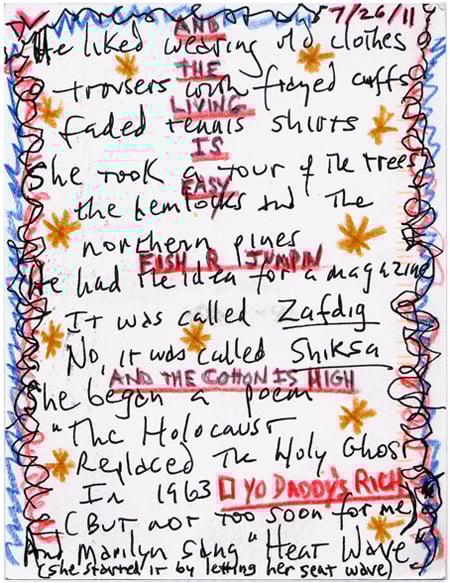 7/26/11
AND
He liked wearing old clothes
THE
trousers with frayed cuffs
LIVING
faded tennis shirts
IS
She took a tour of the trees
EASY
the hemlocks and the
northern pines
FISH R JUMPIN
He had the idea for a magazine
It was called Zaftig
No, it was called Shiksa
AND THE COTTON IS HIGH
She began a poem
"The Holocaust
Replaced The Holy Ghost
In 1963 YO DADDY'S RICH
(But not too soon for me)"
And Marilyn sang "Heat Wave"
(she started it by letting her seat wave)